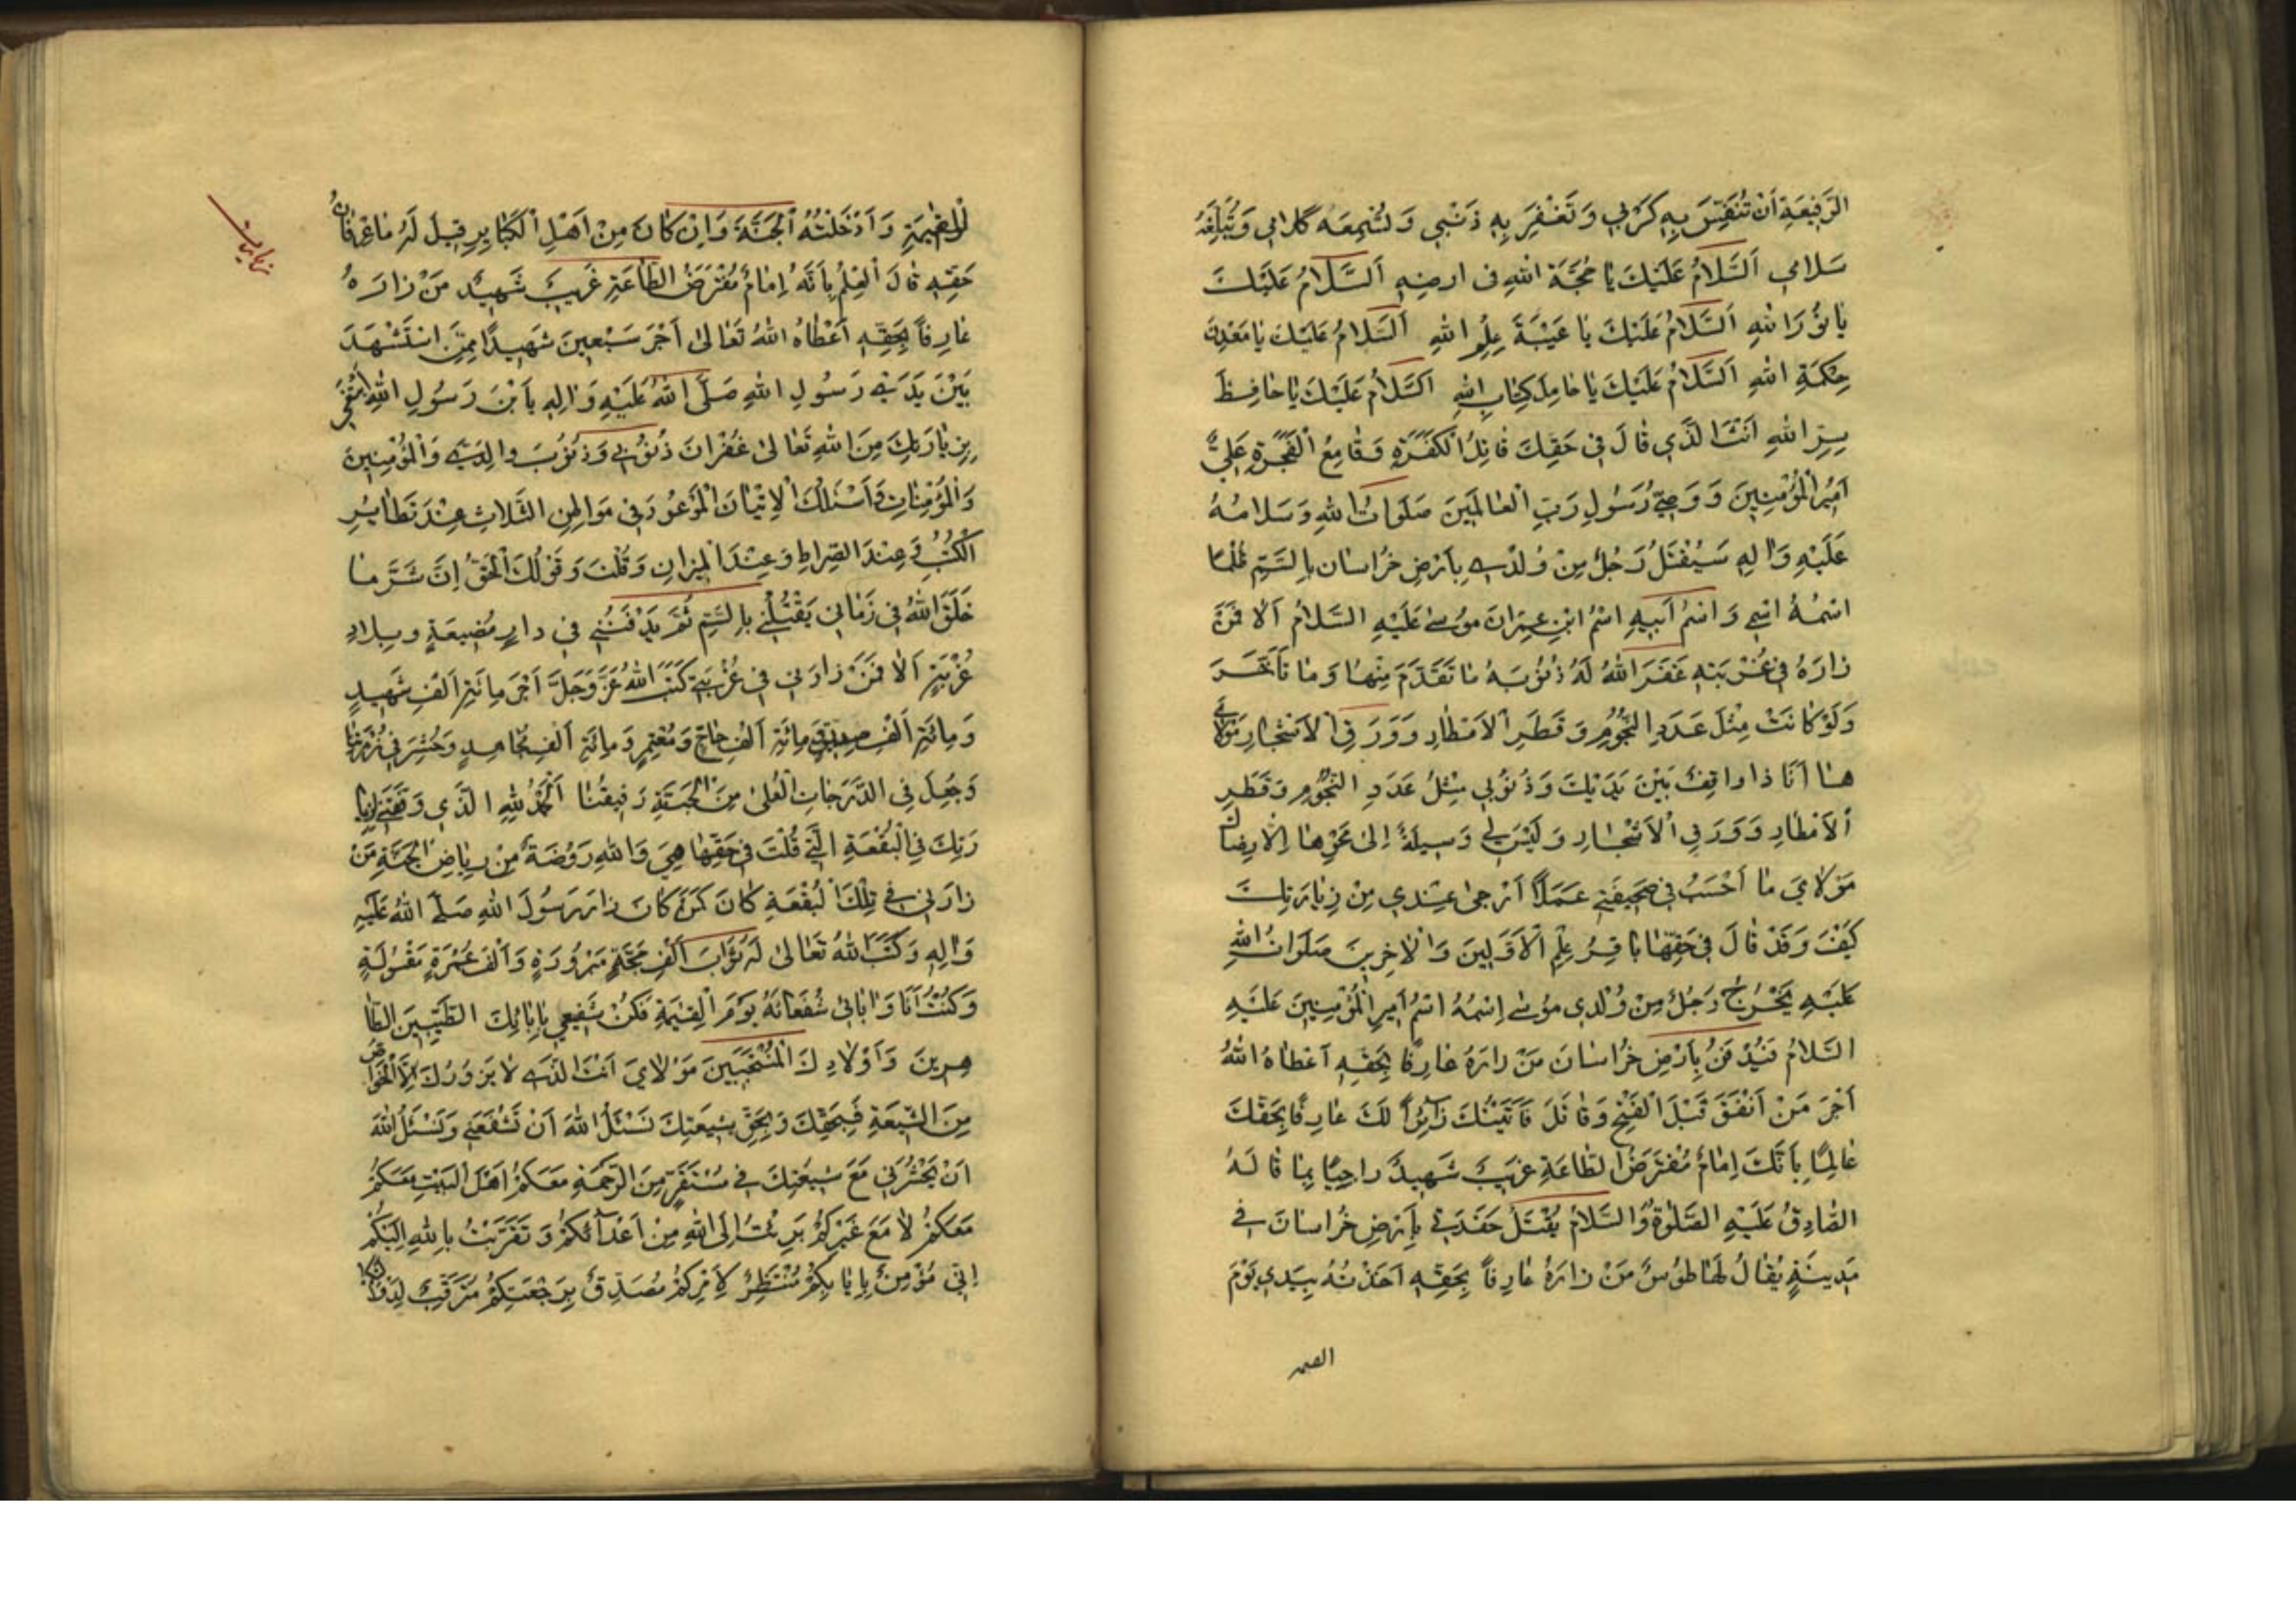 الرَّفِيعَةِ اَنْ تُنَفِّسَ بِهِ كَرْبِي وَتَغْفِرَ بِهِ ذَنْبِي وَتُسْمِعَه كَلامِي وَتُبَلِّغَهُ
سَلامِي اَلسَّلامُ عَلَيْكَ يا حُجَّةَ اللهِ فى ارضِهِ اَلسَّلامُ عَلَيْكَ
يا نُورَ اللهِ اَلسَّلامُ عَلَيْكَ يا عَيْبَةَ عِلْمِ اللهِ اَلسَّلامُ عَلَيْكَ يا مَعْدِنَ
حِكْمَةِ اللهِ اَلسَّلامُ عَلَيْكَ يا حامِلَ كِتابِ اللهِ اَلسَّلامُ عَلَيْكَ يا حافِظَ
سِرِّ اللهِ اَنْتَ الَّذِي قالَ فِي حَقِّكَ قاتِلُ الْكَفَرَةِ وَقامِعُ الْفَجَرَةِ عَلِيٌّ
اَمِيرُ الْمُؤْمِنِينَ وَوَصِيُّ رَسُولِ رَبِّ الْعالَمِينَ صَلَواتُ اللهِ وَسَلامُهُ
عَلَيْهِ وَالِهِ سَيُقْتَلُ رَجُلٌ مِنْ وُلْدِي بِاَرْضِ خُراسان بِالسَّمِّ ظُلْمًا
اسْمُهُ اسْمِي وَاسْمُ اَبِيهِ اسْمُ ابْنِ عِمْرانَ مُوسى عَلَيْهِ السَّلامُ اَلا فَمَنْ
زارَهُ فِي غُرْبَتِهِ غَفَرَ اللهُ لَهُ ذُنُوبَهُ ما تَقَدَّمَ مِنْها وَما تَاَخَّرَ
وَلَوْ كانَتْ مِثْلَ عَدَدِ النُّجُومِ وَقَطَرِ الاَمْطارِ وَوَرَقِ الاَشْجارِ مَوْلايَ
ها اَنَا ذا واقِفٌ بَيْنَ يَدَيْكَ وَذُنُوبِي مِثْلُ عَدَدِ النُّجُومِ وَقَطَرِ
اَلاَمْطارِ وَوَرَقِ الاَشْجارِ وَلَيْسَ لِي وَسِيلَةٌ اِلى مَحْوِها اِلّا رِضاكَ
مَوْلايَ ما اَحْسَبُ فِي صَحِيفَتِي عَمَلاً اَرْجى عِنْدِي مِنْ زِيارَتِكَ
كَيْفَ وَقَدْ قالَ فِي حَقِّها باقِرُ عِلْمِ الْاَوَّلِينَ وَالْاخِرِينَ صَلَواتُ اللهِ
عَلَيْهِ يَخْرُجُ رَجُلٌ مِنْ وُلْدِي مُوسى اِسْمُهُ اسْمُ اَمِيرِ الْمُؤْمِنِينَ عَلَيْهِ
السَّلامُ فَيُدْفَنُ بِاَرْضِ خُراسانَ مَنْ زارَهُ عارِفًا بِحَقِّهِ اَعْطاهُ اللهُ
اَجْرَ مَنْ اَنْفَقَ قَبْلَ الْفَتْحِ وَقاتَلَ فَاَتَيْتُكَ زائِرًا لَكَ عارِفًا بِحَقِّكَ
عالِمًا بِاَنَّكَ اِمامٌ مُفْتَرَضُ الطّاعَةِ غَرِيبٌ شَهِيدٌ راجِيًا بِما قالَهُ
الصّادِقُ عَلَيْهِ الصَّلوةُ وَالسَّلامُ يُقْتَلُ حَفَدَتِي بِاَرْضِ خُراسانَ فِي
مَدِينَةٍ يُقالُ لَها طُوسٌ مَنْ زارَهُ عارِفاً بِحَقِّهِ اَخَذْتُهُ بِيَدِي يَوْمَ
القيمة
الْقِيمَةِ وَاَدْخَلْتُهُ الْجَنَّةَ وَاِنْ كانَ مِنْ اَهْلِ الْكَبايِرِ قِيلَ لَهُ ما عِرْفانُ
حَقِّهِ قالَ الْعِلْمُ بِاَنَّهُ اِمامٌ مُفْتَرَضُ الطّاعَةِ غَرِيبٌ شَهِيدٌ مَنْ زارَهُ
عارِفاً بِحَقِّهِ اَعْطاهُ اللهُ تَعالى اَجْرَ سَبْعِينَ شَهِيدًا مِمَّنِ اسْتُشْهِدَ
بَيْنَ يَدَيْ رَسُولِ اللهِ صَلَّى اللهُ عَلَيْهِ وَالِهِ يا بْنَ رَسُولِ اللهِ
بِزِيارَتِكَ مِنَ اللهِ تَعالى غُفْرانَ ذُنُوبِي وَذُنُوبَ والِدَيَّ وَالْمُؤْمِنِينَ
وَالْمُؤْمِناتِ وَاَسْئَلُكَ الْاِتْيانَ الْمَوْعُودَ فِي مَواطِنِ الثَّلاثِ عِنْدَ تَطايُرِ
الْكُتُبِ وَعِنْدَ الصِّراطِ وَعِنْدَ الْمِيزانِ وَقُلْتَ وَقَوْلُكَ الْحَقُّ اِنَّ شَرَّ ما
خَلَقَ اللهُ فِي زَمانِي يَقْتُلُنِي بِالسَّمِّ ثُمَّ يَدْفَنُنِي فِي دارِ مُضِيعَةٍ وبِلادِ
غُرْبَةٍ اَلا فَمَنْ زارَنِي فِي غُرْبَتِي كَتَبَ اللهُ عَزَّ وَجَلَّ اَجْرَ مِائَةِ اَلْفِ شَهِيدٍ
وَمِائَةِ اَلْفِ صِدِّيقٍ وَمِائَةِ اَلْفِ حاجٍّ وَمُعْتَمِرٍ وَمِائَةِ اَلْفِ مُجاهِدٍ وَحُشِرَ فِي زُمْرَتِنا
وَجُعِلَ فِي الدَّرَجاتِ الْعُلى مِنَ الْجَنَّةِ رَفِيقُنا اَلْحَمْدُ لِلّهِ الَّذِي وَفَّقَنِي لِزِيا
رَتِكَ فِي الْبُقْعَةِ الَّتِي قُلْتَ فِي حَقِّها هِيَ وَاللهِ رَوْضَةٌ مِنْ رِياضِ الْجَنَّةِ مَنْ
زارَنِي فِي تِلْكَ الْبُقْعَةِ كانَ كَمَنْ كانَ زارَ رَسُولَ اللهِ صَلَّى اللهُ عَلَيْهِ
وَالِهِ وَكَتَبَ اللهُ تَعالى لَهُ ثَوابَ اَلْفِ حَجَّةٍ مَبْرُورَةٍ وَاَلْفِ عُمْرَةٍ مَقْبُولَةٍ
وَكُنْتُ اَنَا وَابائِي شُفَعائَهُ يَوْمَ الْقِيمَةِ فَكُنْ شَفِيعِي بِابائِكَ الطَّيِّبِينَ الطّا
هِرِينَ وَاَوْلادِكَ الْمُنْتَجَبِينَ مَوْلايَ اَنْتَ الَّذِي لا يَزُورُكَ اِلَّا الْخَواصُّ
مِنَ الشِّيعَةِ فَبِحَقِّكَ وَبِحَقِّ شِيعَتِكَ نَسْئَلُ اللهَ اَنْ تَشْفَعَنِي وَنَسْئَلُ اللهَ
اَنْ يَحْشُرَنِي مَعَ شِيعَتِكَ فِي مُسْتَقَرٍّ مِنَ الرَّحْمَةِ مَعَكُمْ اَهْلَ الْبَيْتِ مَعَكُمْ
مَعَكُمْ لا مَعَ غَيْرِكُمْ بَرِئْتُ اِلَى اللهِ مِنْ اَعْدائِكُمْ وَتَقَرَّبْتُ بِاللهِ اِلَيْكُمْ
اِنِّي مُؤْمِنٌ بِاِيابِكُمْ مُنْتَظِرٌ لِاَمْرِكُمْ مُصَدِّقٌ بِرَجْعَتِكُمْ مُتَرَقِّبٌ لِدَوْلَتِكُمْ